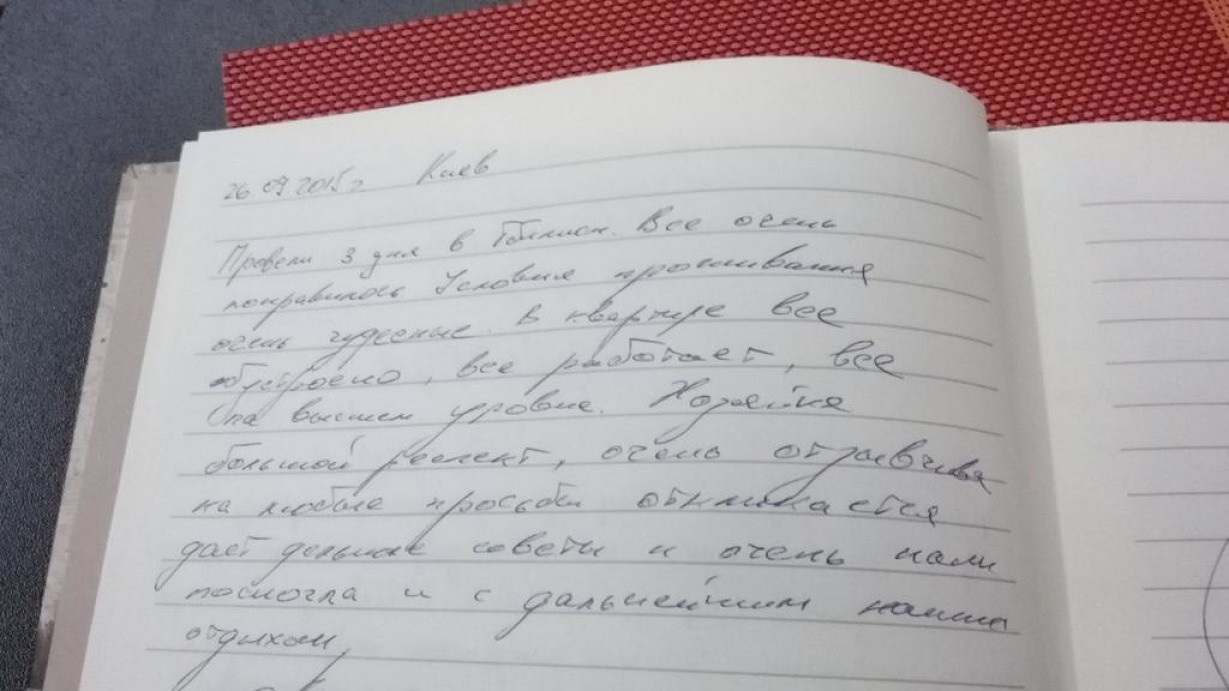 26.09.2015г Киев
Провели 3 дня в Тбилиси. Все очень
понравилось Условия проживания
очень чудесные. В квартире все
обустроено, все работает, все
на высшем уровне. Хозяйке
большой респект, очень отзывчива
на любые просьбы откликается
дает дельные советы и очень нам
помогла и с дальнейшим нашим
отдыхом,